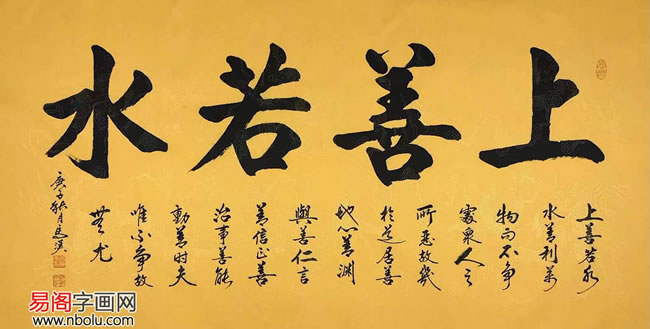 上善若水
上善若水
水善利萬
物而不争
處衆人之
所惡故幾
於道居善
地心善淵
與善仁言
善信正善
治事善能
動善时夫
唯不争故
無尤
庚子秋月
易阁字画网
www.nbolu.com